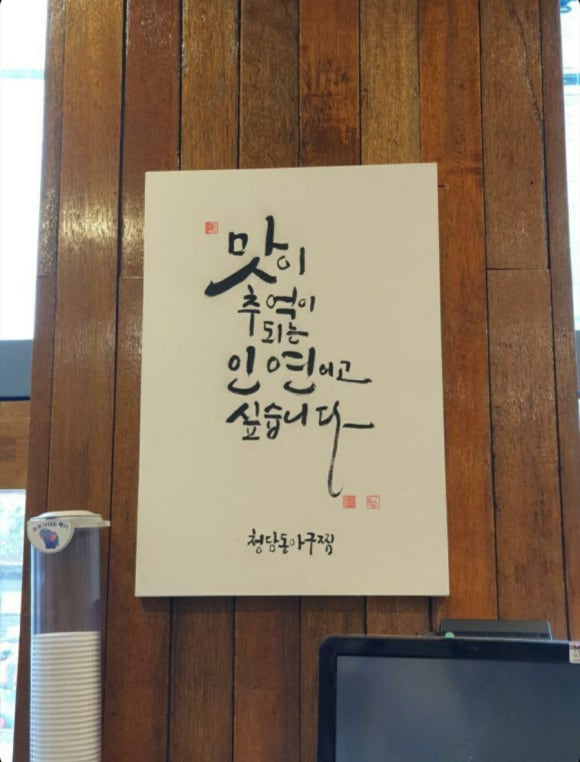 맛이
추억이
되는
인연이고
싶습니다
청담동아구찜